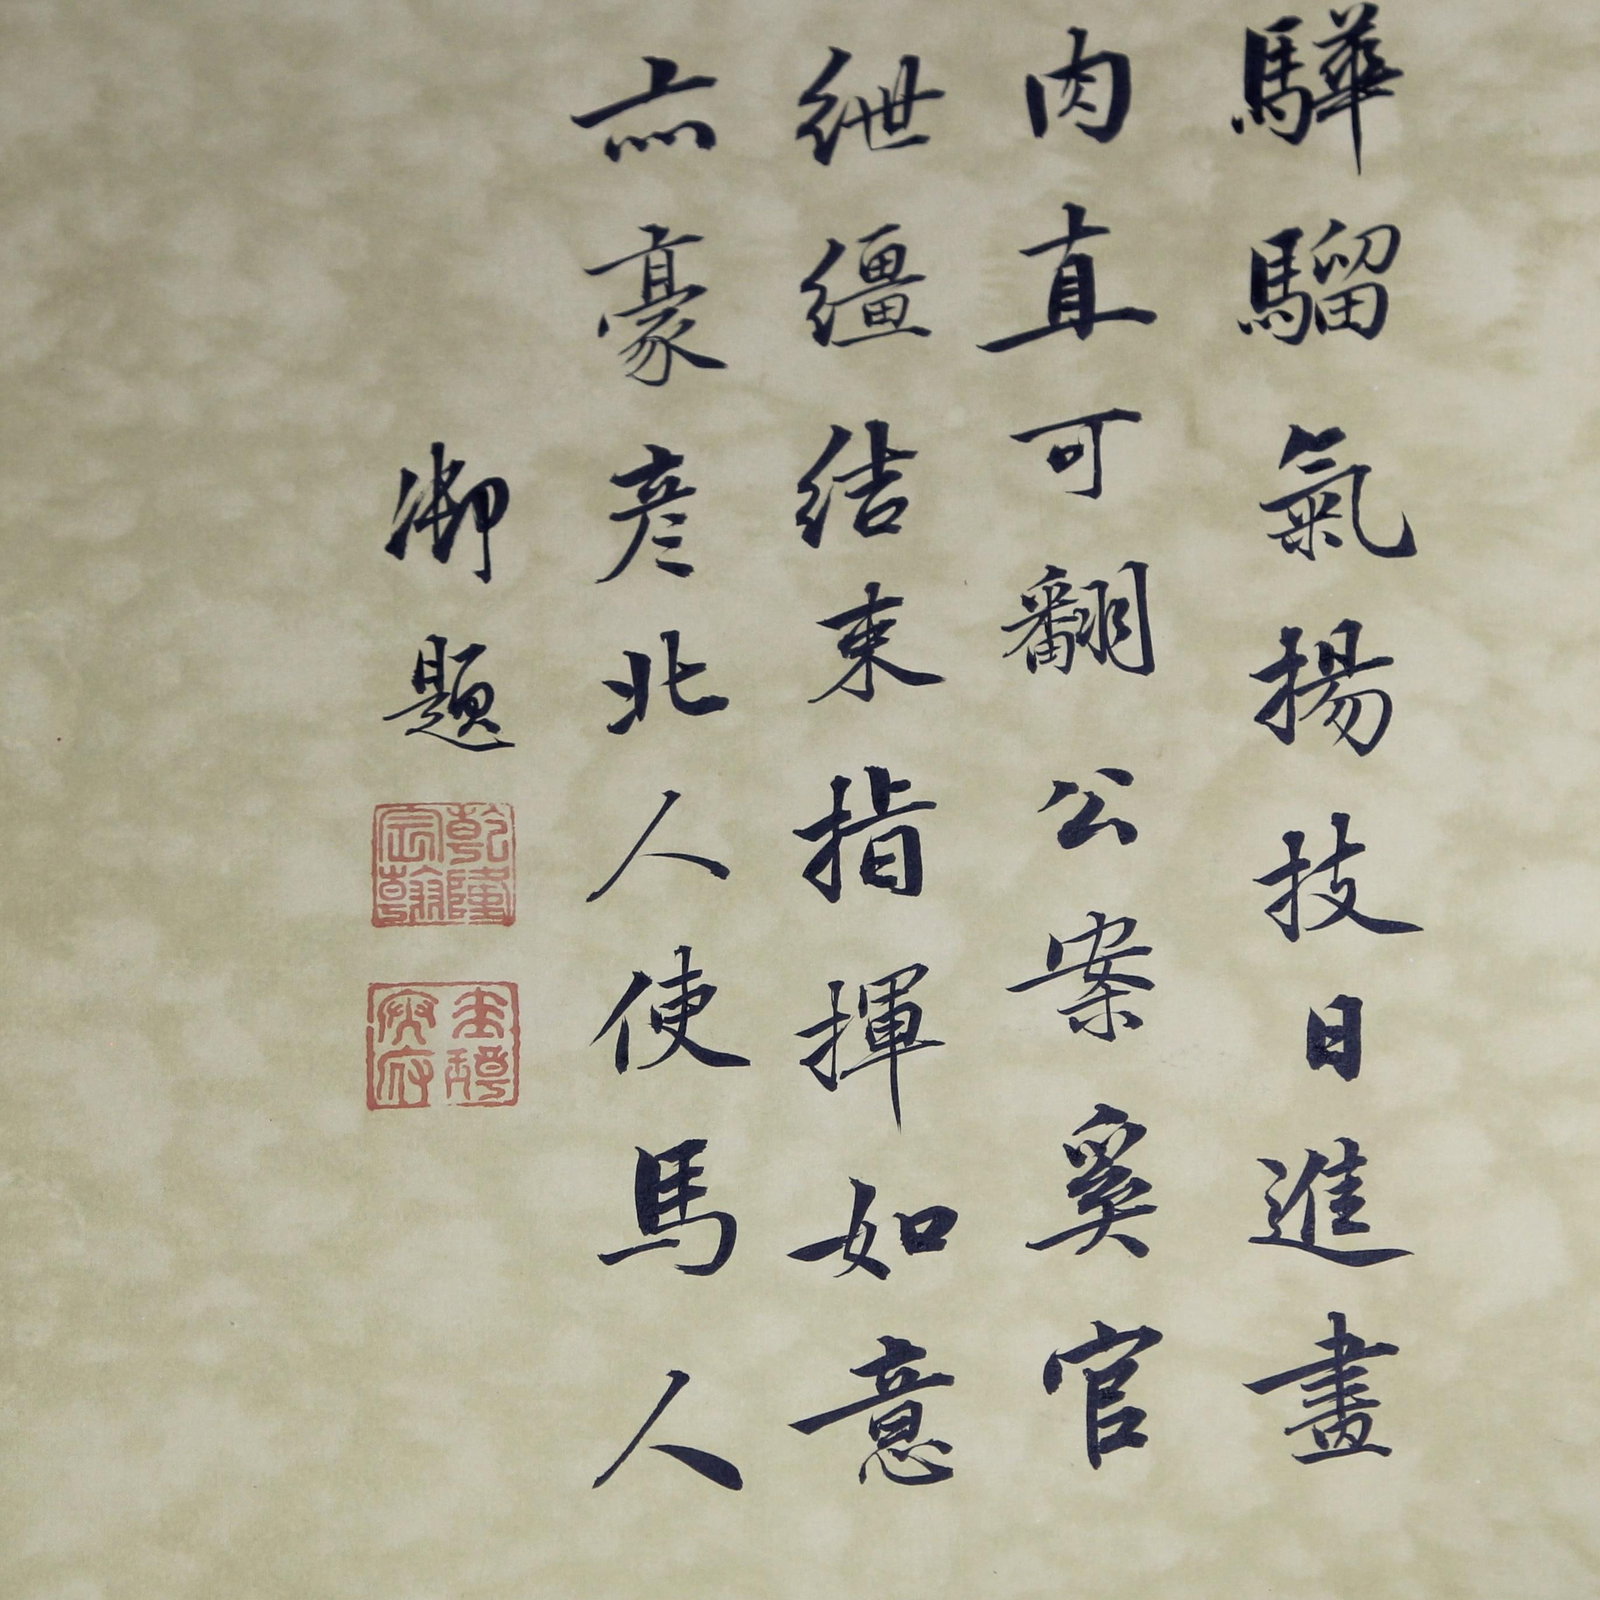 驊騮氣揚技日進畫
肉直可翻公案奚官
紲繮結束指揮如意
亦豪彦北人使馬人
御題
乾隆宸翰